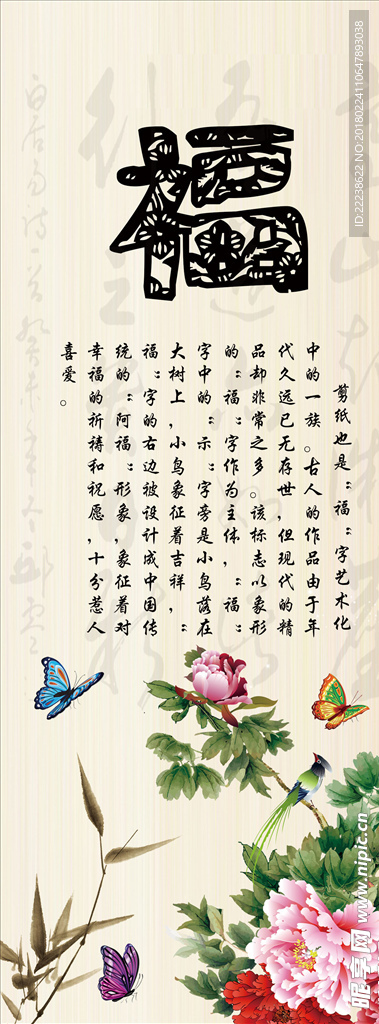 福
剪纸也是“福”字艺术化
中的一族。古人的作品由于年
代久远已无存世，但现代的精
品却非常之多。该标志以象形
的“福”字作为主体，“福”
字中的“示”字旁是小鸟落在
大树上，小鸟象征着吉祥，“
福”字的右边被设计成中国传
统的“阿福”形象，象征着对
幸福的祈祷和祝愿，十分惹人
喜爱。
ID:22238622 NO:20180224110647893038
昵享网 www.nipic.cn